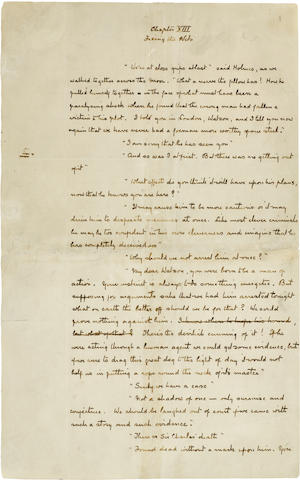 Chapter XIII
Fixing the Nets
"We're at close grips at last" said Holmes, as we
walked together across the moor. "What a nerve the fellow has! How he
pulled himself together in the face of what must have been a
paralyzing shock when he found that the wrong man had fallen a
victim to his plot. I told you in London, Watson, and I tell you now
again that we have never had a foeman more worthy of our steel."
"I am sorry that he has seen you"
"And so was I at first. But there was no getting out
of it"
"What effect do you think it will have upon his plans,
now that he knows you are here?"
"It may cause him to be more cautious or it may
drive him to desperate measures at once. Like most clever criminals
he may be too confident in his own cleverness and imagine that he
has completely deceived us"
"Why should we not arrest him at once?"
"My dear Watson, you were born to be a man of
action. Your instinct is always to do something energetic. But
supposing for argument's sake that we had him arrested tonight
what on earth the better off should we be for that? We could
prove nothing against him.
There's the devilish cunning of it! If he
were acting through a human agent we could get some evidence, but
if we were to drag this great dog to the light of day it would not
help us in putting a rope round the neck of its master"
"Surely we have a case"
"Not a shadow of one – only surmise and
conjecture. We should be laughed out of court if we came with
such a story and such evidence."
"There is Sir Charles's death"
"Found dead without a mark upon him. You